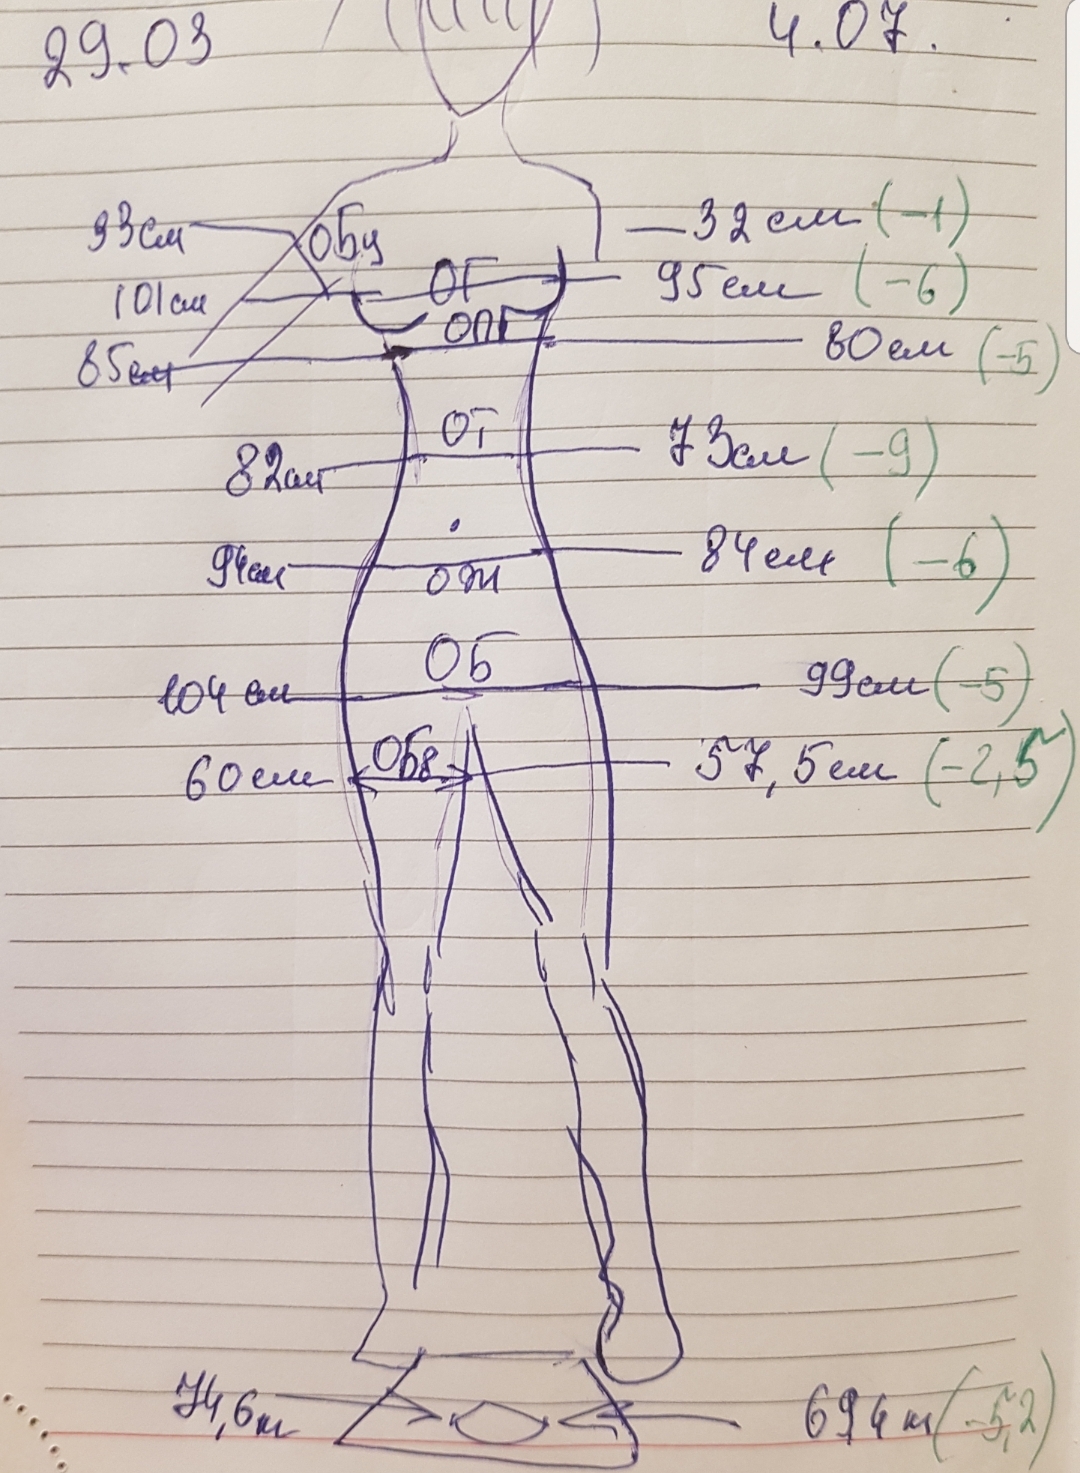 29.03 4.07.
33см Обц 32см (-1)
101см ОГ 95см (-6)
85см ОПГ 80см (-5)
82см ОТ 73см (-9)
94см ОЖ 84см (-6)
104см ОБ 99см (-5)
60см Обв. 57,5см (-2,5)
74,6кг 69,4кг (-5,2)